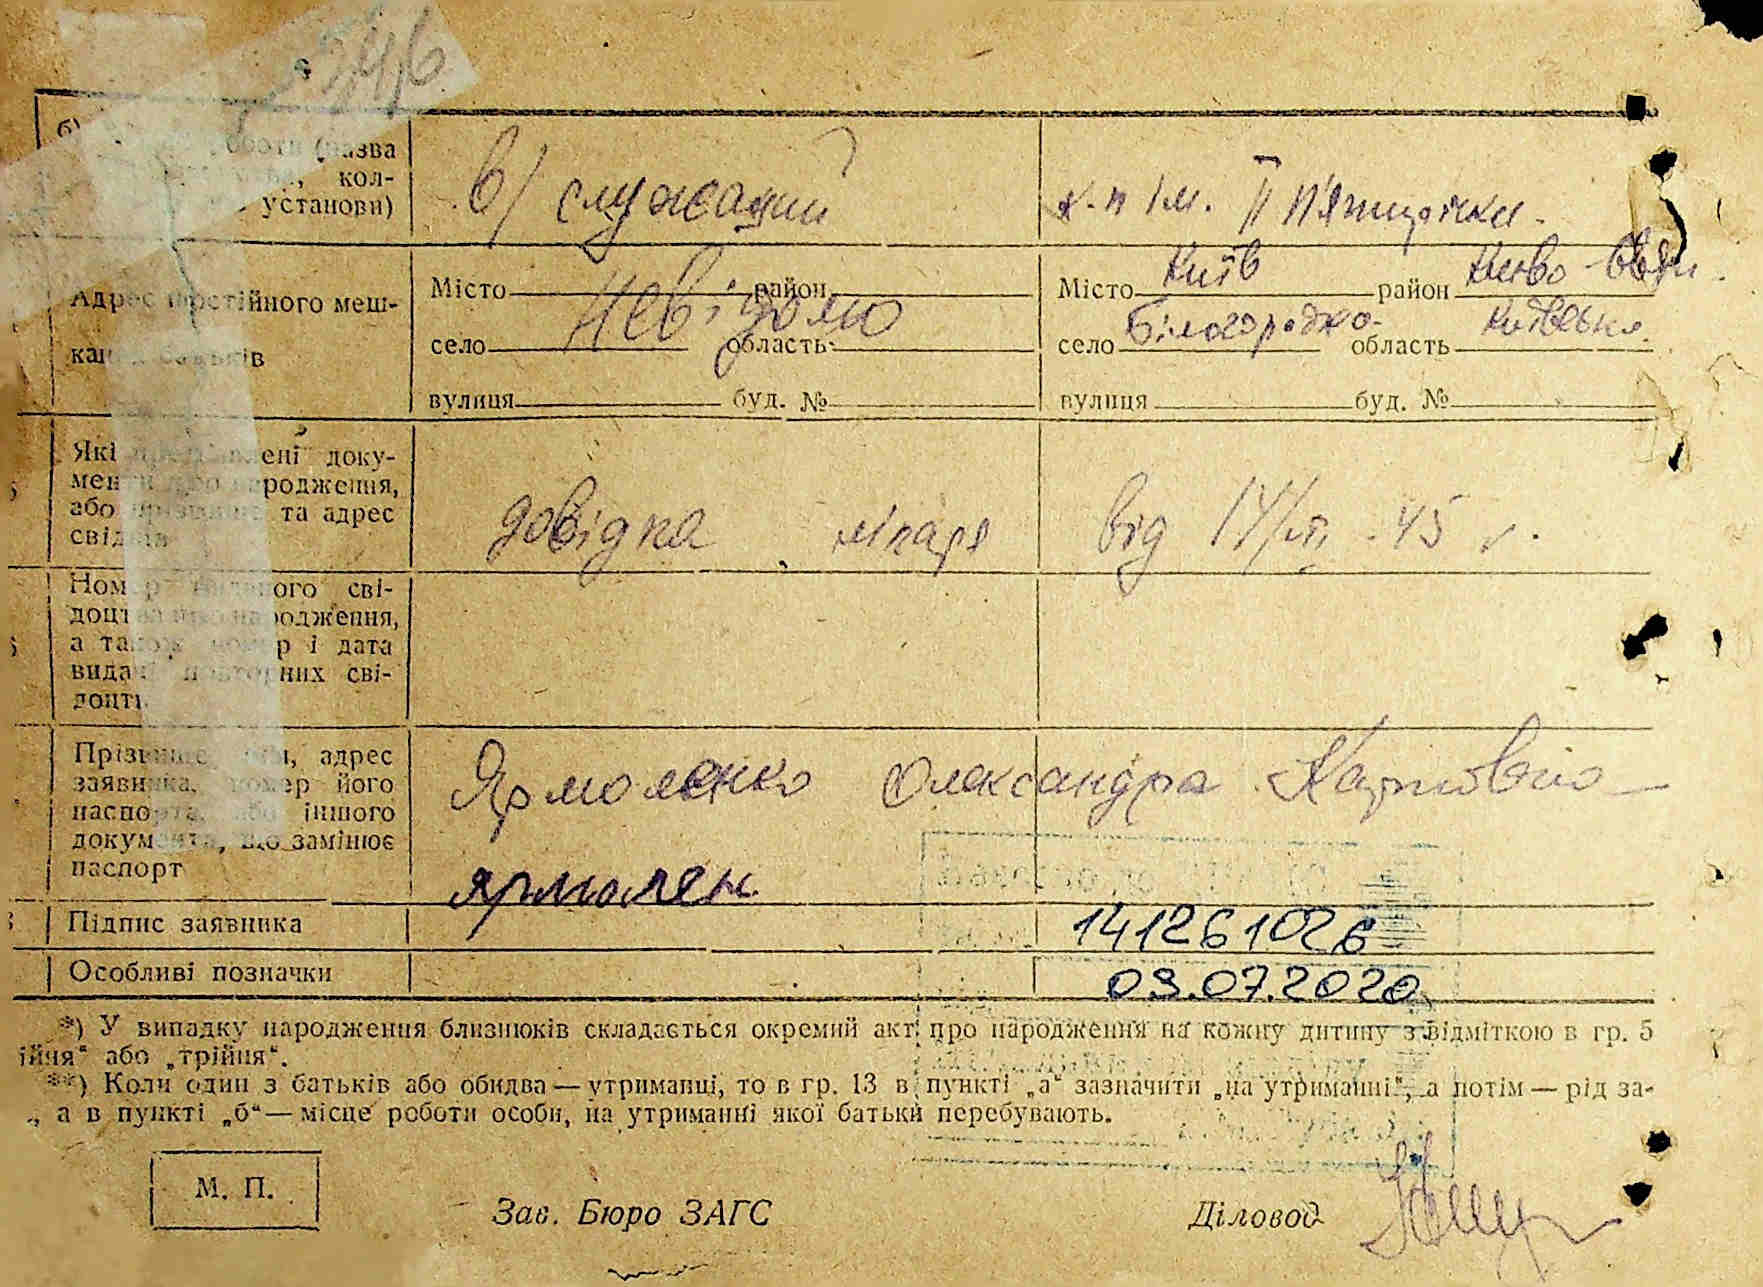 346
б) роботи (назва
кол-
установи)
в/ служащий
к-п ім. ІІ П'ятирічки.
Адрес постійного меш-
кан батьків
Місто район
Невідомо
село область
вулиця буд. №
Місто Київ район Києво-Свят.
село Білогородка область Київська
вулиця буд. №
Які представлені доку-
менти про народження,
або прізвище та адрес
свідків
довідка лікаря від 14/ 45 г.
Номер виданого сві-
доцтва про народження,
а також номер і дата
видачі повторних сві-
доцтв
Прізвище, ім'я, адрес
заявника, номер його
паспорта, або іншого
документа, що замінює
паспорт
Ярмоленко Олександра Карповна
Підпис заявника
Ярмолен
141261026
Особливі позначки
03.07.2020
*) У випадку народження близнюків складається окремий акт про народження на кожну дитину з відміткою в гр. 5
ійня“ або „трійня“.
**) Коли один з батьків або обидва — утриманці, то в гр. 13 в пункті „а“ зазначити „на утриманні“, а потім — рід за-
., а в пункті „б“ — місце роботи особи, на утриманні якої батьки перебувають.
М. П.
Зав. Бюро ЗАГС
Діловод